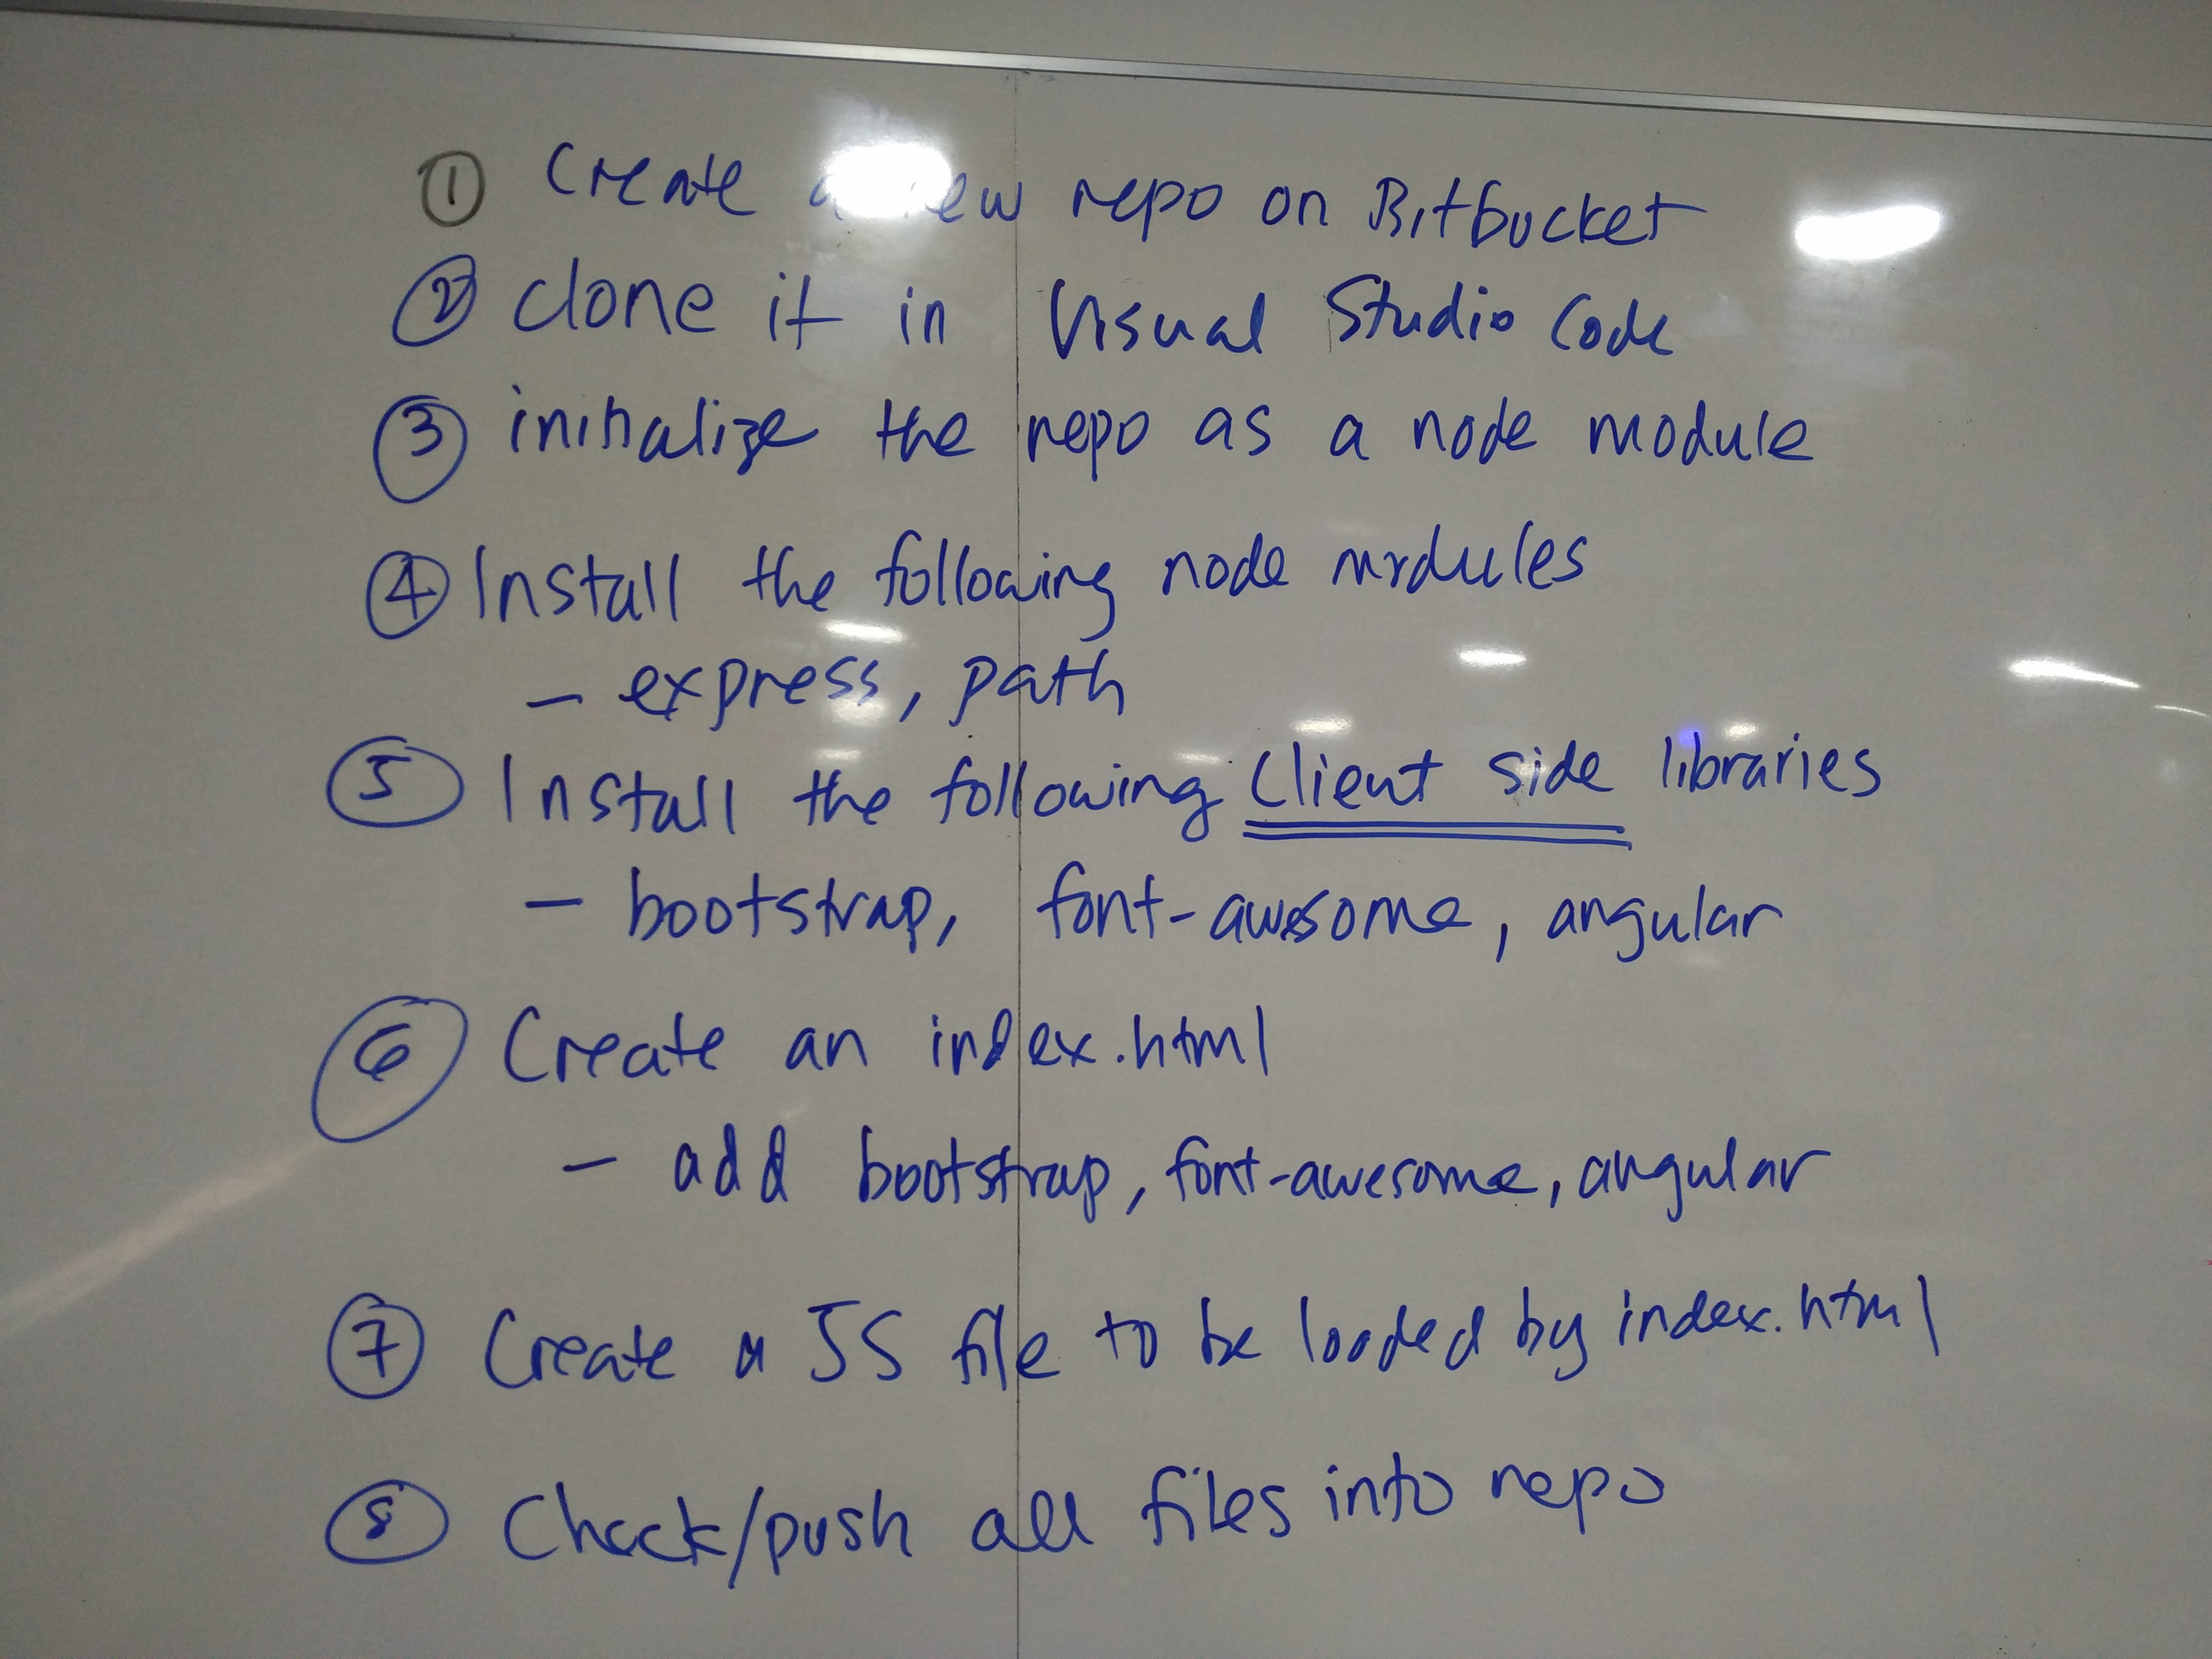 ① Create a new repo on Bitbucket
② clone it in Visual Studio Code
③ initialize the repo as a node module
④ Install the following node modules
- express, path
⑤ Install the following Client side libraries
- bootstrap, font-awesome, angular
⑥ Create an index.html
- add bootstrap, font-awesome, angular
⑦ Create a JS file to be loaded by index.html
⑧ Check/push all files into repo